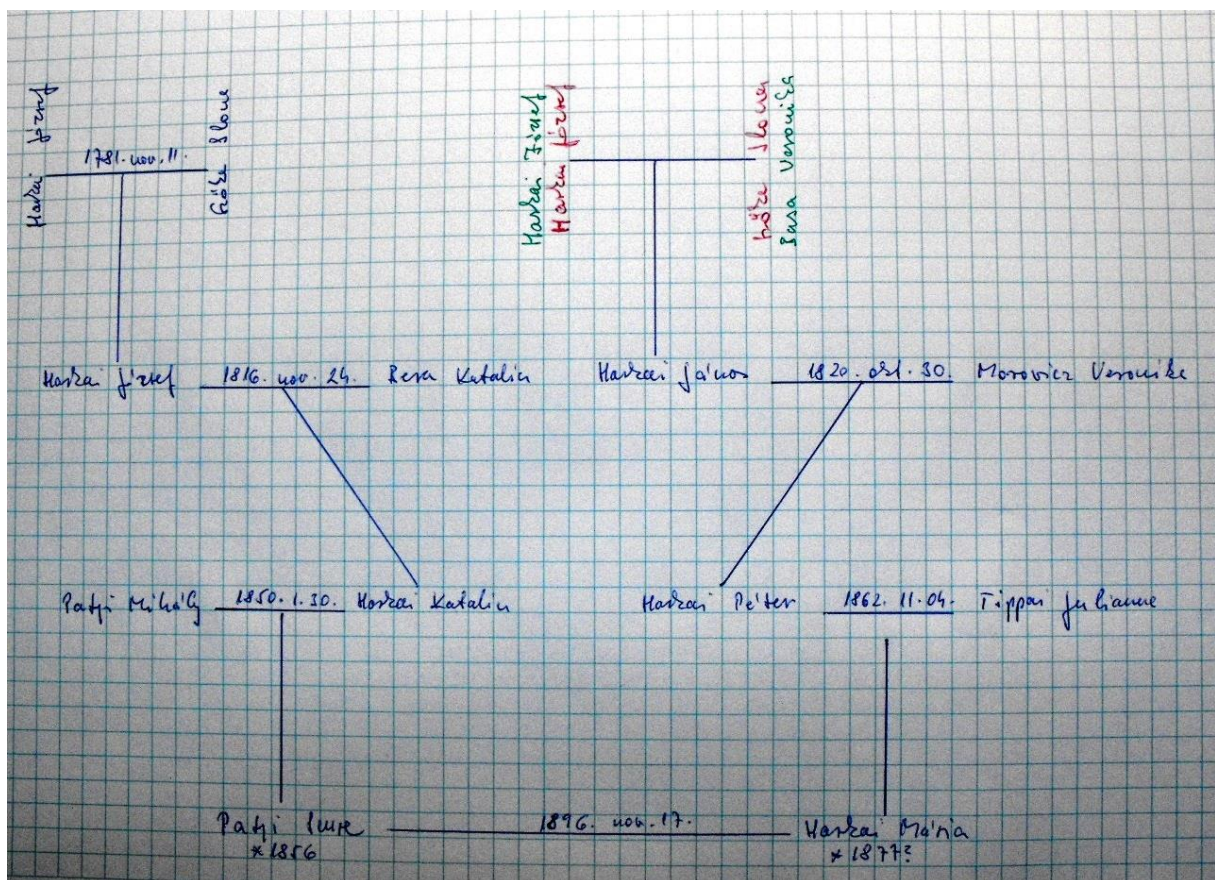 Harkai József
1781. nov. 11.
Gőze Ilona
Harkai József
Harkai József
Gőze Ilona
Basa Veronika
Harkai József 1816. nov. 24. Besa Katalin
Harkai János 1820. okt. 30. Morovicz Veronika
Patyi Mihály 1850. 1. 30. Harkai Katalin
Harkai Péter 1862. 11. 04. Tippai Julianna
Patyi Imre 1896. nov. 17. Harkai Mária
* 1856
* 1877?